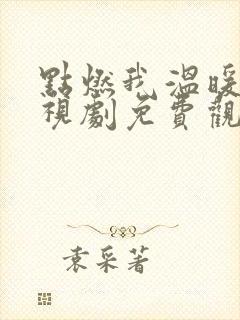 點燃我溫暖
視劇免費觀
袁采著